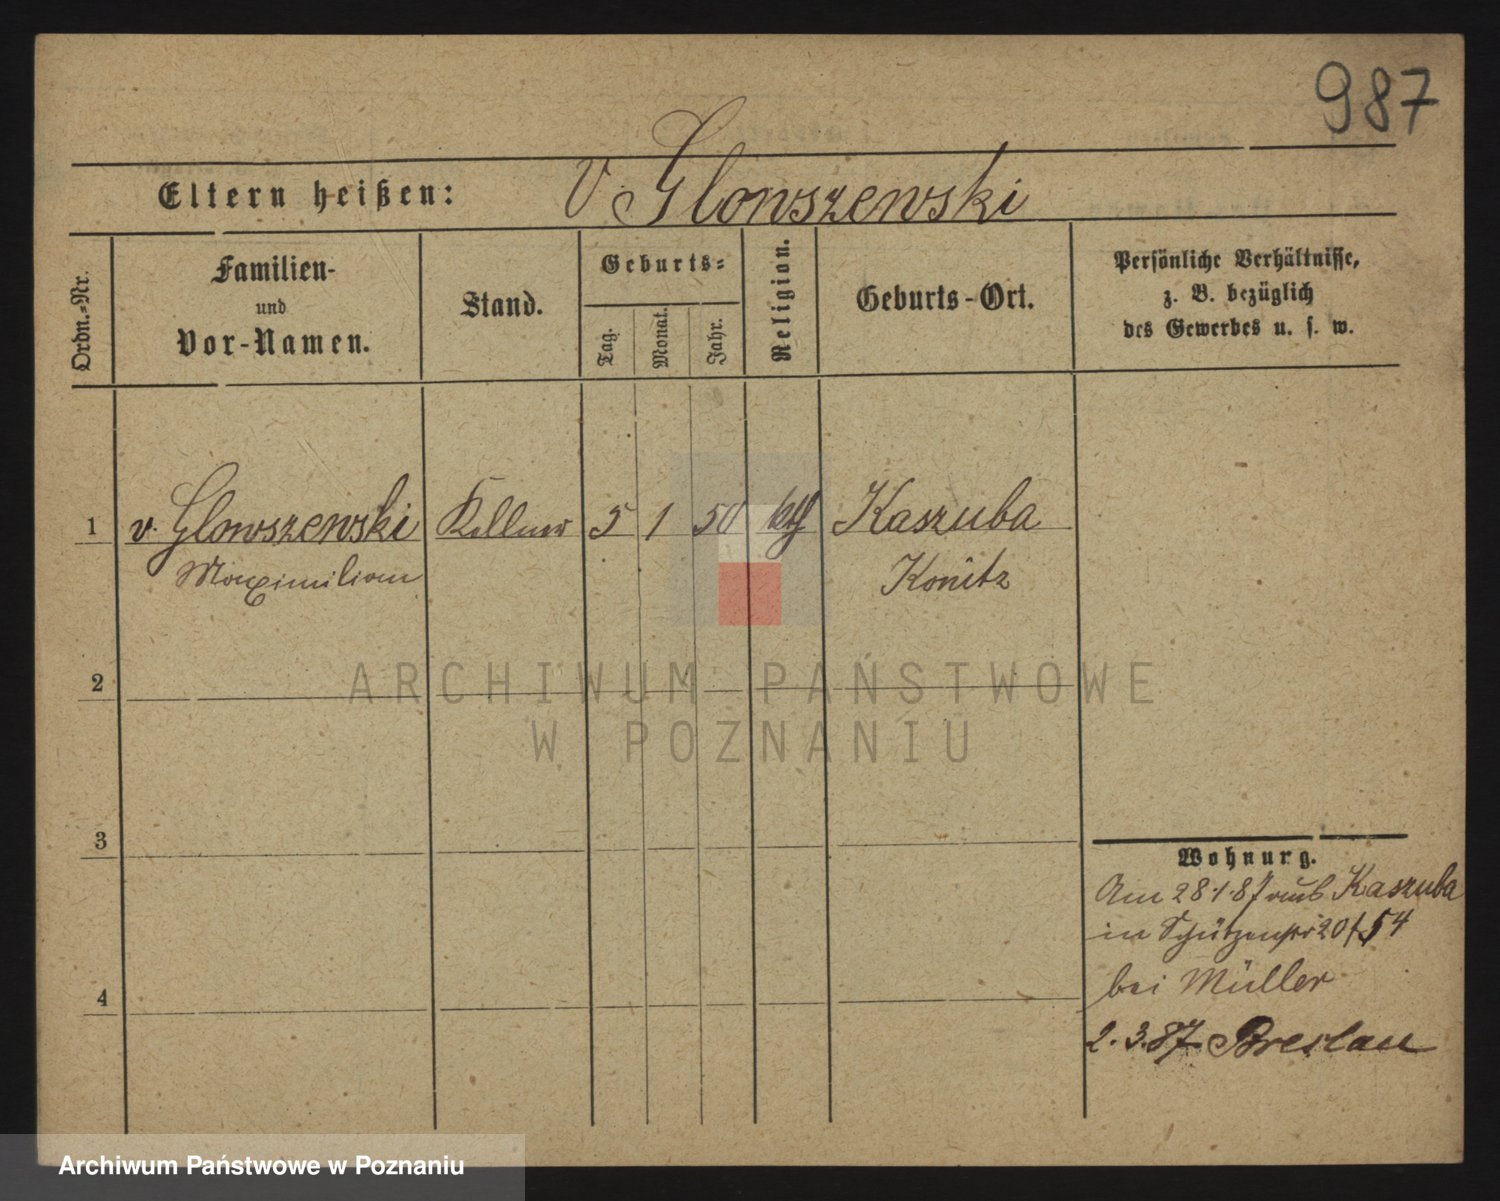 987
Eltern heißen: v. Glowszewski
Ordn.-Nr.
Familien-
und
Vor-Namen.
Stand.
Geburts-
Tag.
Monat.
Jahr.
Religion.
Geburts-Ort.
Persönliche Verhältnisse,
z. B. bezüglich
des Gewerbes u. s. w.
1 v. Glowszewski Kellner 5 1 50 kth Kaszuba
Maximilian Konitz
2
3
4
Wohnung.
Am 28.1.87 aus Kaszuba
in Schützenstr 20/54
bei Müller
2.3.87 Breslau
ARCHIWUM PAŃSTWOWE
W POZNANIU
Archiwum Państwowe w Poznaniu